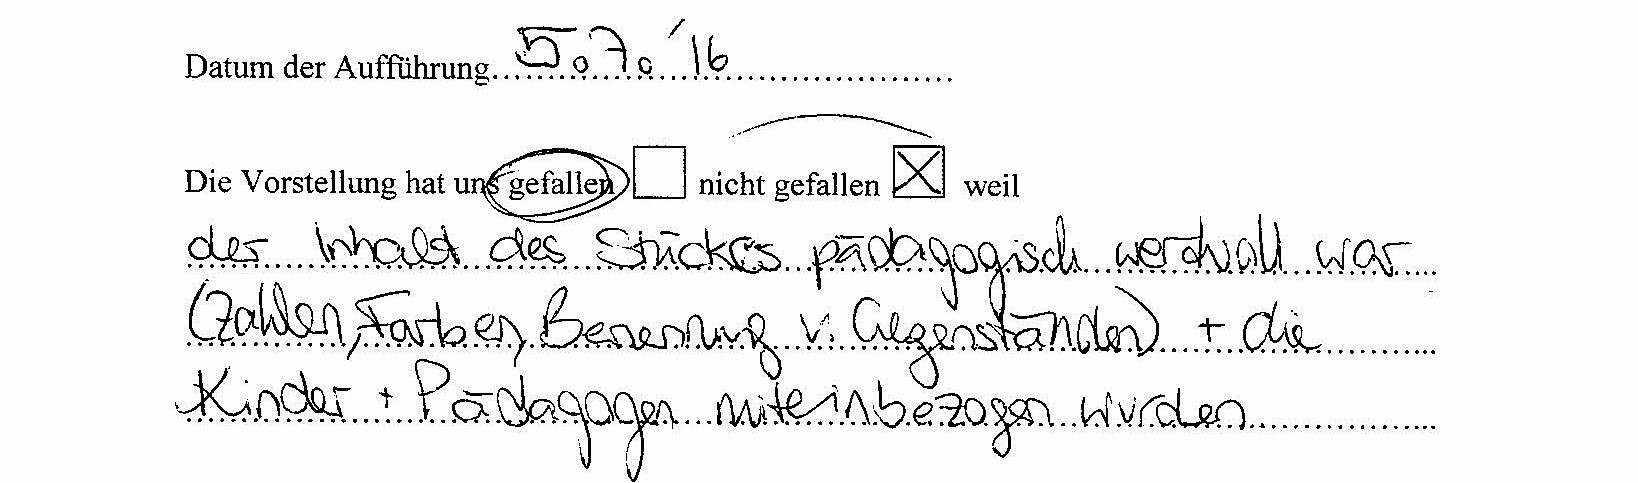 Datum der Aufführung 5.7.'16
Die Vorstellung hat uns gefallen ☐ nicht gefallen ☒ weil
der Inhalt des Stückes pädagogisch wertvoll war
(Zahlen, Farben, Benennung v. Gegenständen) + die
Kinder + Pädagogen miteinbezogen wurden